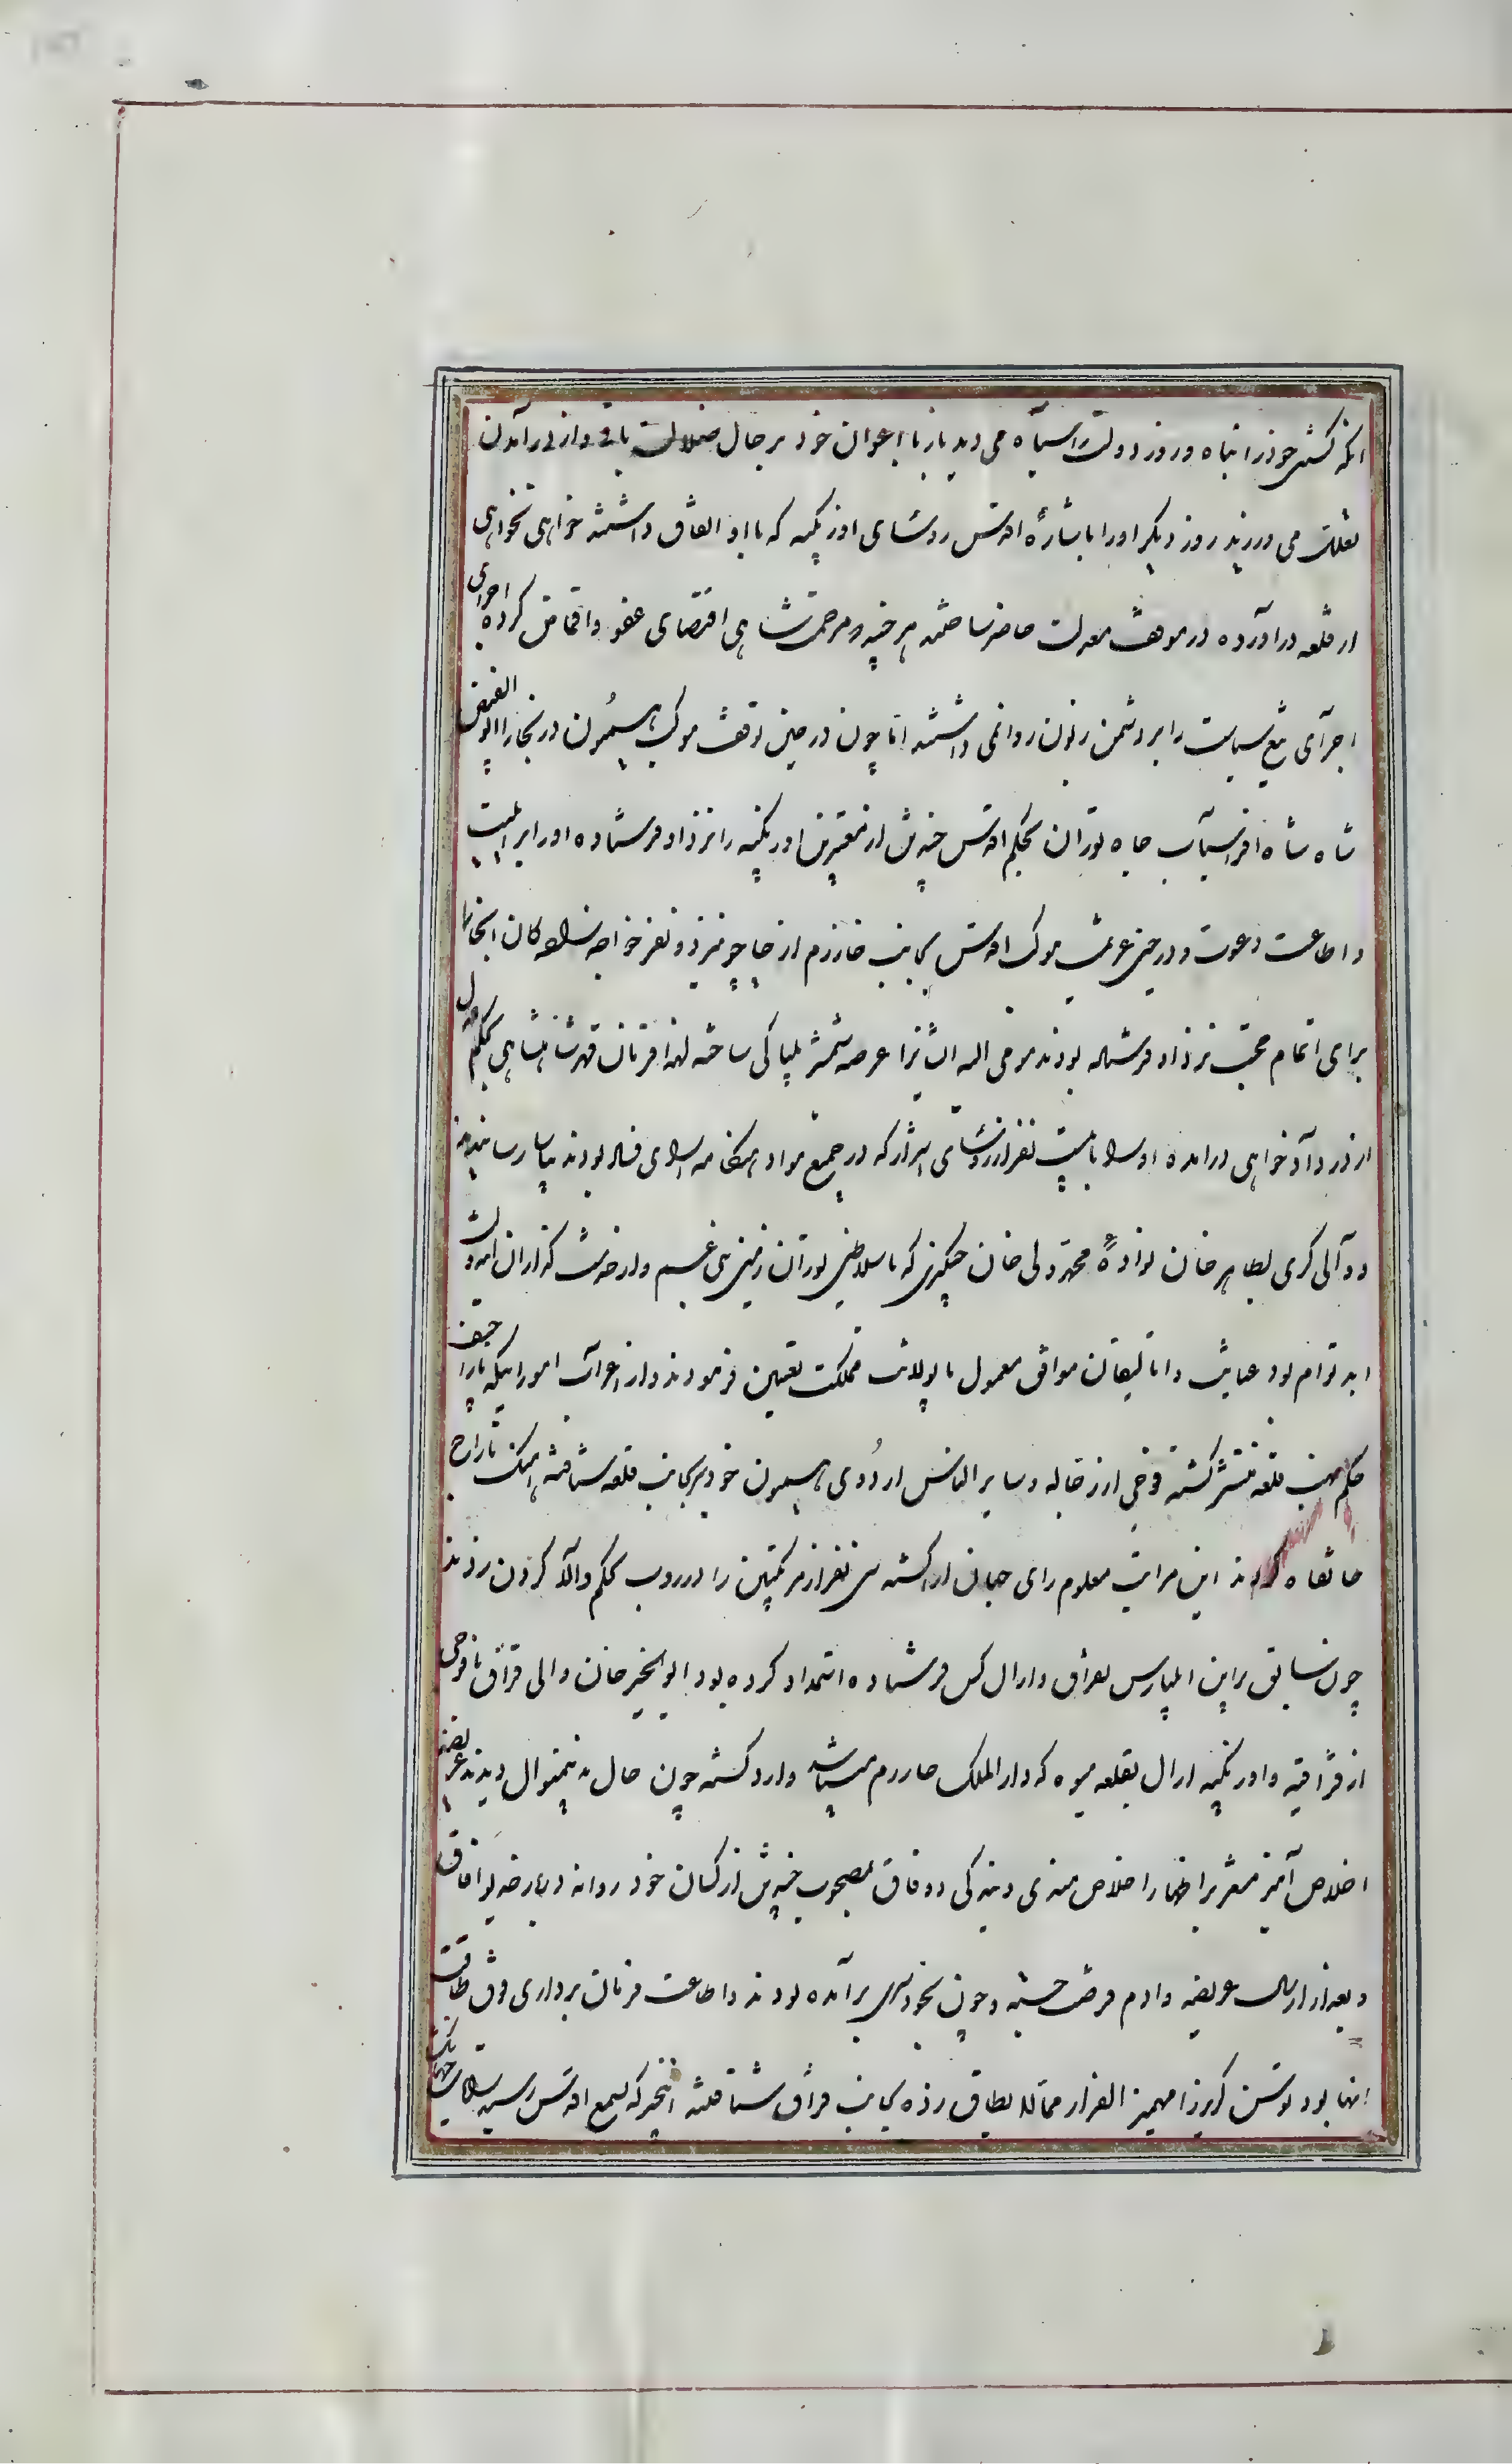 انکه کشتی خود را تباه و روز دولت را سیاه می دید باز با اعوان خود بر حال ضلالت باقی و از درآمدن
تعلل می ورزید روز دیگر او را باشارهٔ اقدس روسای اوزبکیه که با او اتفاق داشتند خواهی نخواهی
از قلعه درآورده در موقف معدلت حاضر ساختند هر چند مرحمت شاهی اقتضای عفو و اغماض کرده اجرای
اجرای تیغ سیاست را بر دشمن زبون روا نمی داشتند اما چون در حین توقف موکب همیون در بخارا ابوالفیض
شاه شاه افراسیاب جاه توران بحکم اقدس چند تن از معتبرین اوزبکیه را نزد او فرستاده او را بر ایلیت
و اطاعت دعوت و در حین عزیمت موکب اقدس بجانب خوارزم از چارجو نیز دو نفر خواجه زادکان انجا را
برای اتمام حجت نزد او فرستاده بودند مومی الیه ایشانرا عرصه شمشیر بیباکی ساخته لهذا فرمان قهر شاهنشاهی بحکم عدل
از در دادخواهی درآمده او را با بیست نفر از روسای اشرار که در جمیع مواد هنکامه ارای فساد بودند بیاسا رسانیدند
و والی کری بطاهر خان نوادهٔ محمد ولی خان چنکیزی که با سلاطین توران زمین بنی عم و از خدمت کذاران این دولت
ابد توام بود عنایت و اتالیقان موافق معمول با یولات مملکت تعیین فرمودند و از غرایب امور اینکه بارا جیف
حکم نهب قلعه منتشر کشته فوجی از رجاله و سایر الناس اردوی همیون خودسر بجانب قلعه شتافته اهنک تاراج
خانقاه کردند این مراتب معلوم رای جهان آرا کشته سی نفر از مرتکبین را در دروب بحکم والا کردن زدند
چون سابق بر این ایلبارس بقزاق و ارال کس فرستاده استمداد کرده بود ابوالخیر خان والی قزاق با فوجی
از قزاقیه و اوزبکیه ارال بقلعه خیوه که دارالملک خوارزم میباشد وارد کشته چون حال بدینمنوال دیدند عریضه
اخلاص آمیز مشعر بر اظهار اخلاص مندی و بندکی و وفاق بمصحوب چند تن از کسان خود روانه دربار خدیو افاق
و بعد از ارسال عریضه و ادم فرصت جسته و چون بخودسری برآمده بودند و اطاعت فرمان برداری فوق طاقت
انها بود توسن کریز را مهمیز الفرار مما لا یطاق زده بجانب قزاق شتافتند اینخبر که بسمع اقدس رسید